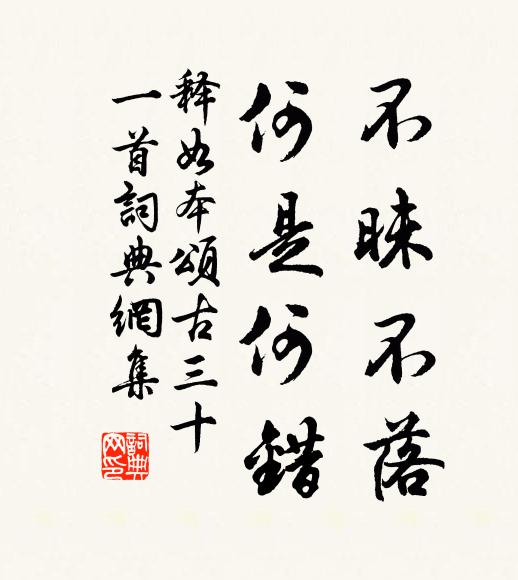 不昧不落
何是何錯
释如本頌古三十
一首詞典網集
詞典
网印